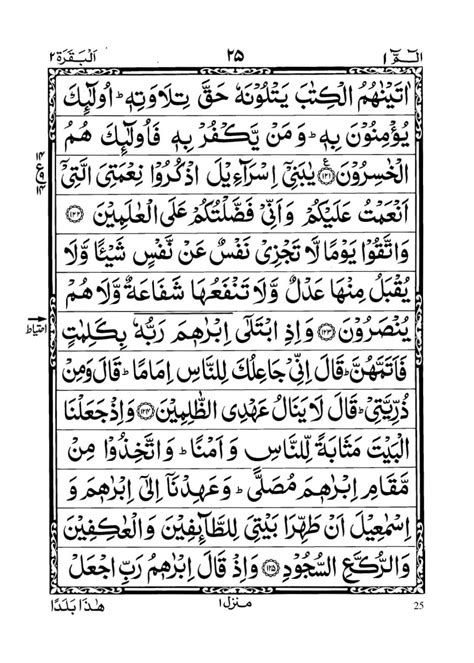 الٓمّٓ ١ ٢٥ اَلْبَقَرَة ٢
اٰتَيْنٰهُمُ الْكِتٰبَ يَتْلُوْنَهٗ حَقَّ تِلَاوَتِهٖ ؕ اُولٰٓئِكَ
يُؤْمِنُوْنَ بِهٖ ؕ وَمَنْ يَّكْفُرْ بِهٖ فَاُولٰٓئِكَ هُمُ
الْخٰسِرُوْنَ ۝١٢١ يٰبَنِيْۤ اِسْرَآءِيْلَ اذْكُرُوْا نِعْمَتِيَ الَّتِيْۤ
اَنْعَمْتُ عَلَيْكُمْ وَاَنِّيْ فَضَّلْتُكُمْ عَلَى الْعٰلَمِيْنَ ۝١٢٢
وَاتَّقُوْا يَوْمًا لَّا تَجْزِيْ نَفْسٌ عَنْ نَّفْسٍ شَيْـًٔا وَّلَا
يُقْبَلُ مِنْهَا عَدْلٌ وَّلَا تَنْفَعُهَا شَفَاعَةٌ وَّلَا هُمْ
يُنْصَرُوْنَ ۝١٢٣ وَاِذِ ابْتَلٰۤى اِبْرٰهٖمَ رَبُّهٗ بِكَلِمٰتٍ
احتیاط
فَاَتَمَّهُنَّ ؕ قَالَ اِنِّيْ جَاعِلُكَ لِلنَّاسِ اِمَامًا ؕ قَالَ وَمِنْ
ذُرِّيَّتِيْ ؕ قَالَ لَا يَنَالُ عَهْدِي الظّٰلِمِيْنَ ۝١٢٤ وَاِذْ جَعَلْنَا
الْبَيْتَ مَثَابَةً لِّلنَّاسِ وَاَمْنًا ؕ وَاتَّخِذُوْا مِنْ
مَّقَامِ اِبْرٰهٖمَ مُصَلًّى ؕ وَعَهِدْنَاۤ اِلٰۤى اِبْرٰهٖمَ وَ
اِسْمٰعِيْلَ اَنْ طَهِّرَا بَيْتِيَ لِلطَّآئِفِيْنَ وَالْعٰكِفِيْنَ
وَالرُّكَّعِ السُّجُوْدِ ۝١٢٥ وَاِذْ قَالَ اِبْرٰهٖمُ رَبِّ اجْعَلْ
هٰذَا بَلَدًا منزل ١ 25